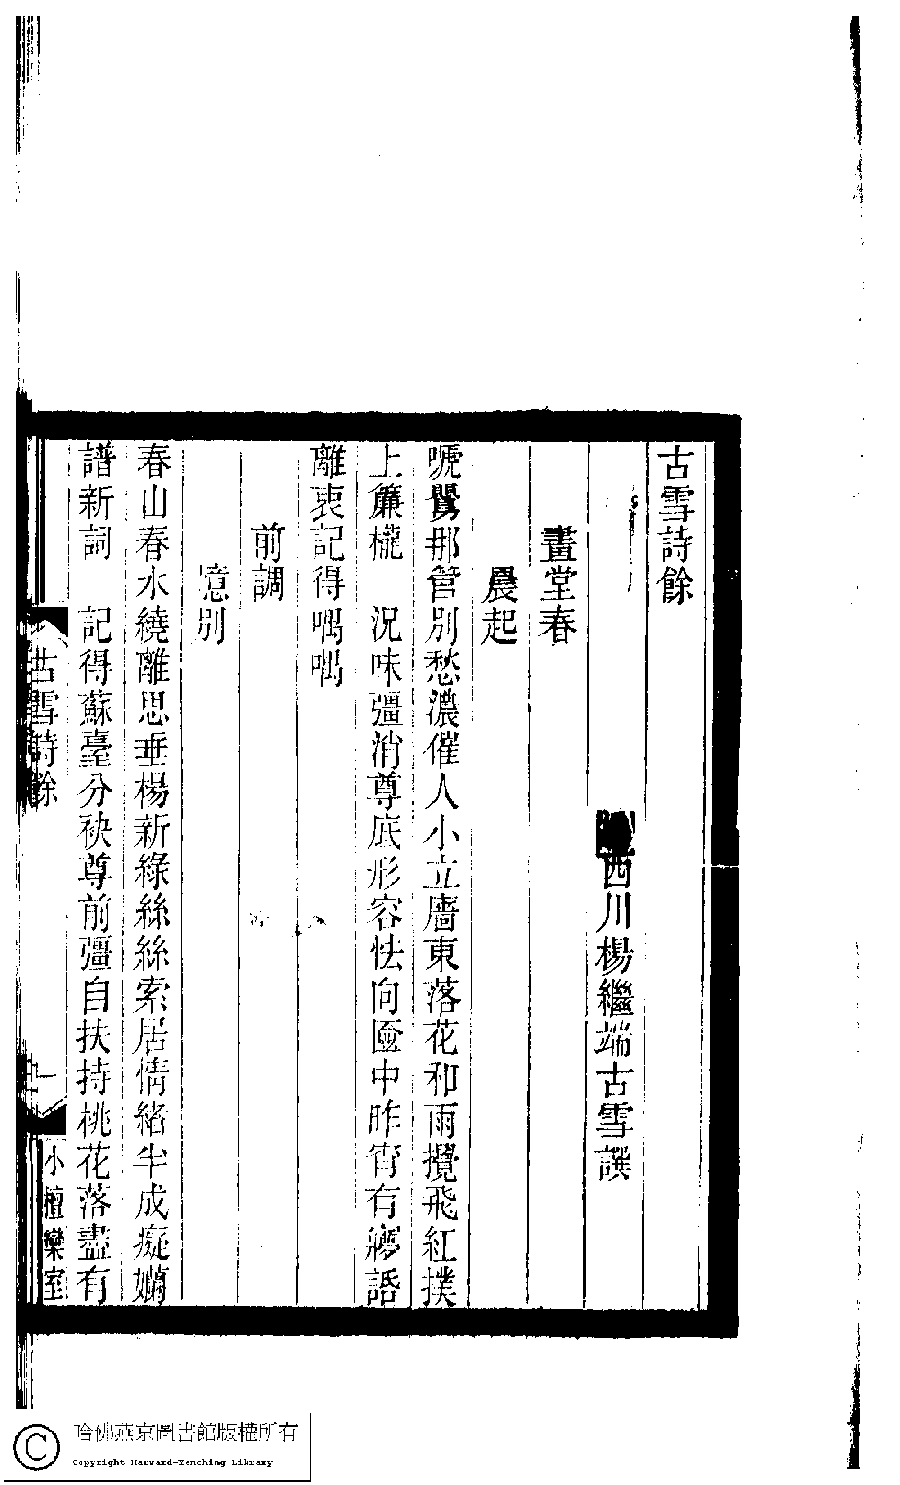 古雪詩餘
西川楊繼端古雪譔
畫堂春
晨起
嗁鶯那管別愁濃催人小立廧東落花和雨攪飛紅撲
上簾櫳　況味彊消尊底形容怯向匳中昨宵有㝱話
離衷記得喁喁
前調
憶別
春山春水繞離思垂楊新綠絲絲索居情緒半成癡嬾
譜新詞　記得蘇臺分袂尊前彊自扶持桃花落盡有
古雪詩餘
一
小檀欒室
哈佛燕京圖書館版權所有
Copyright Harvard-Yenching Library